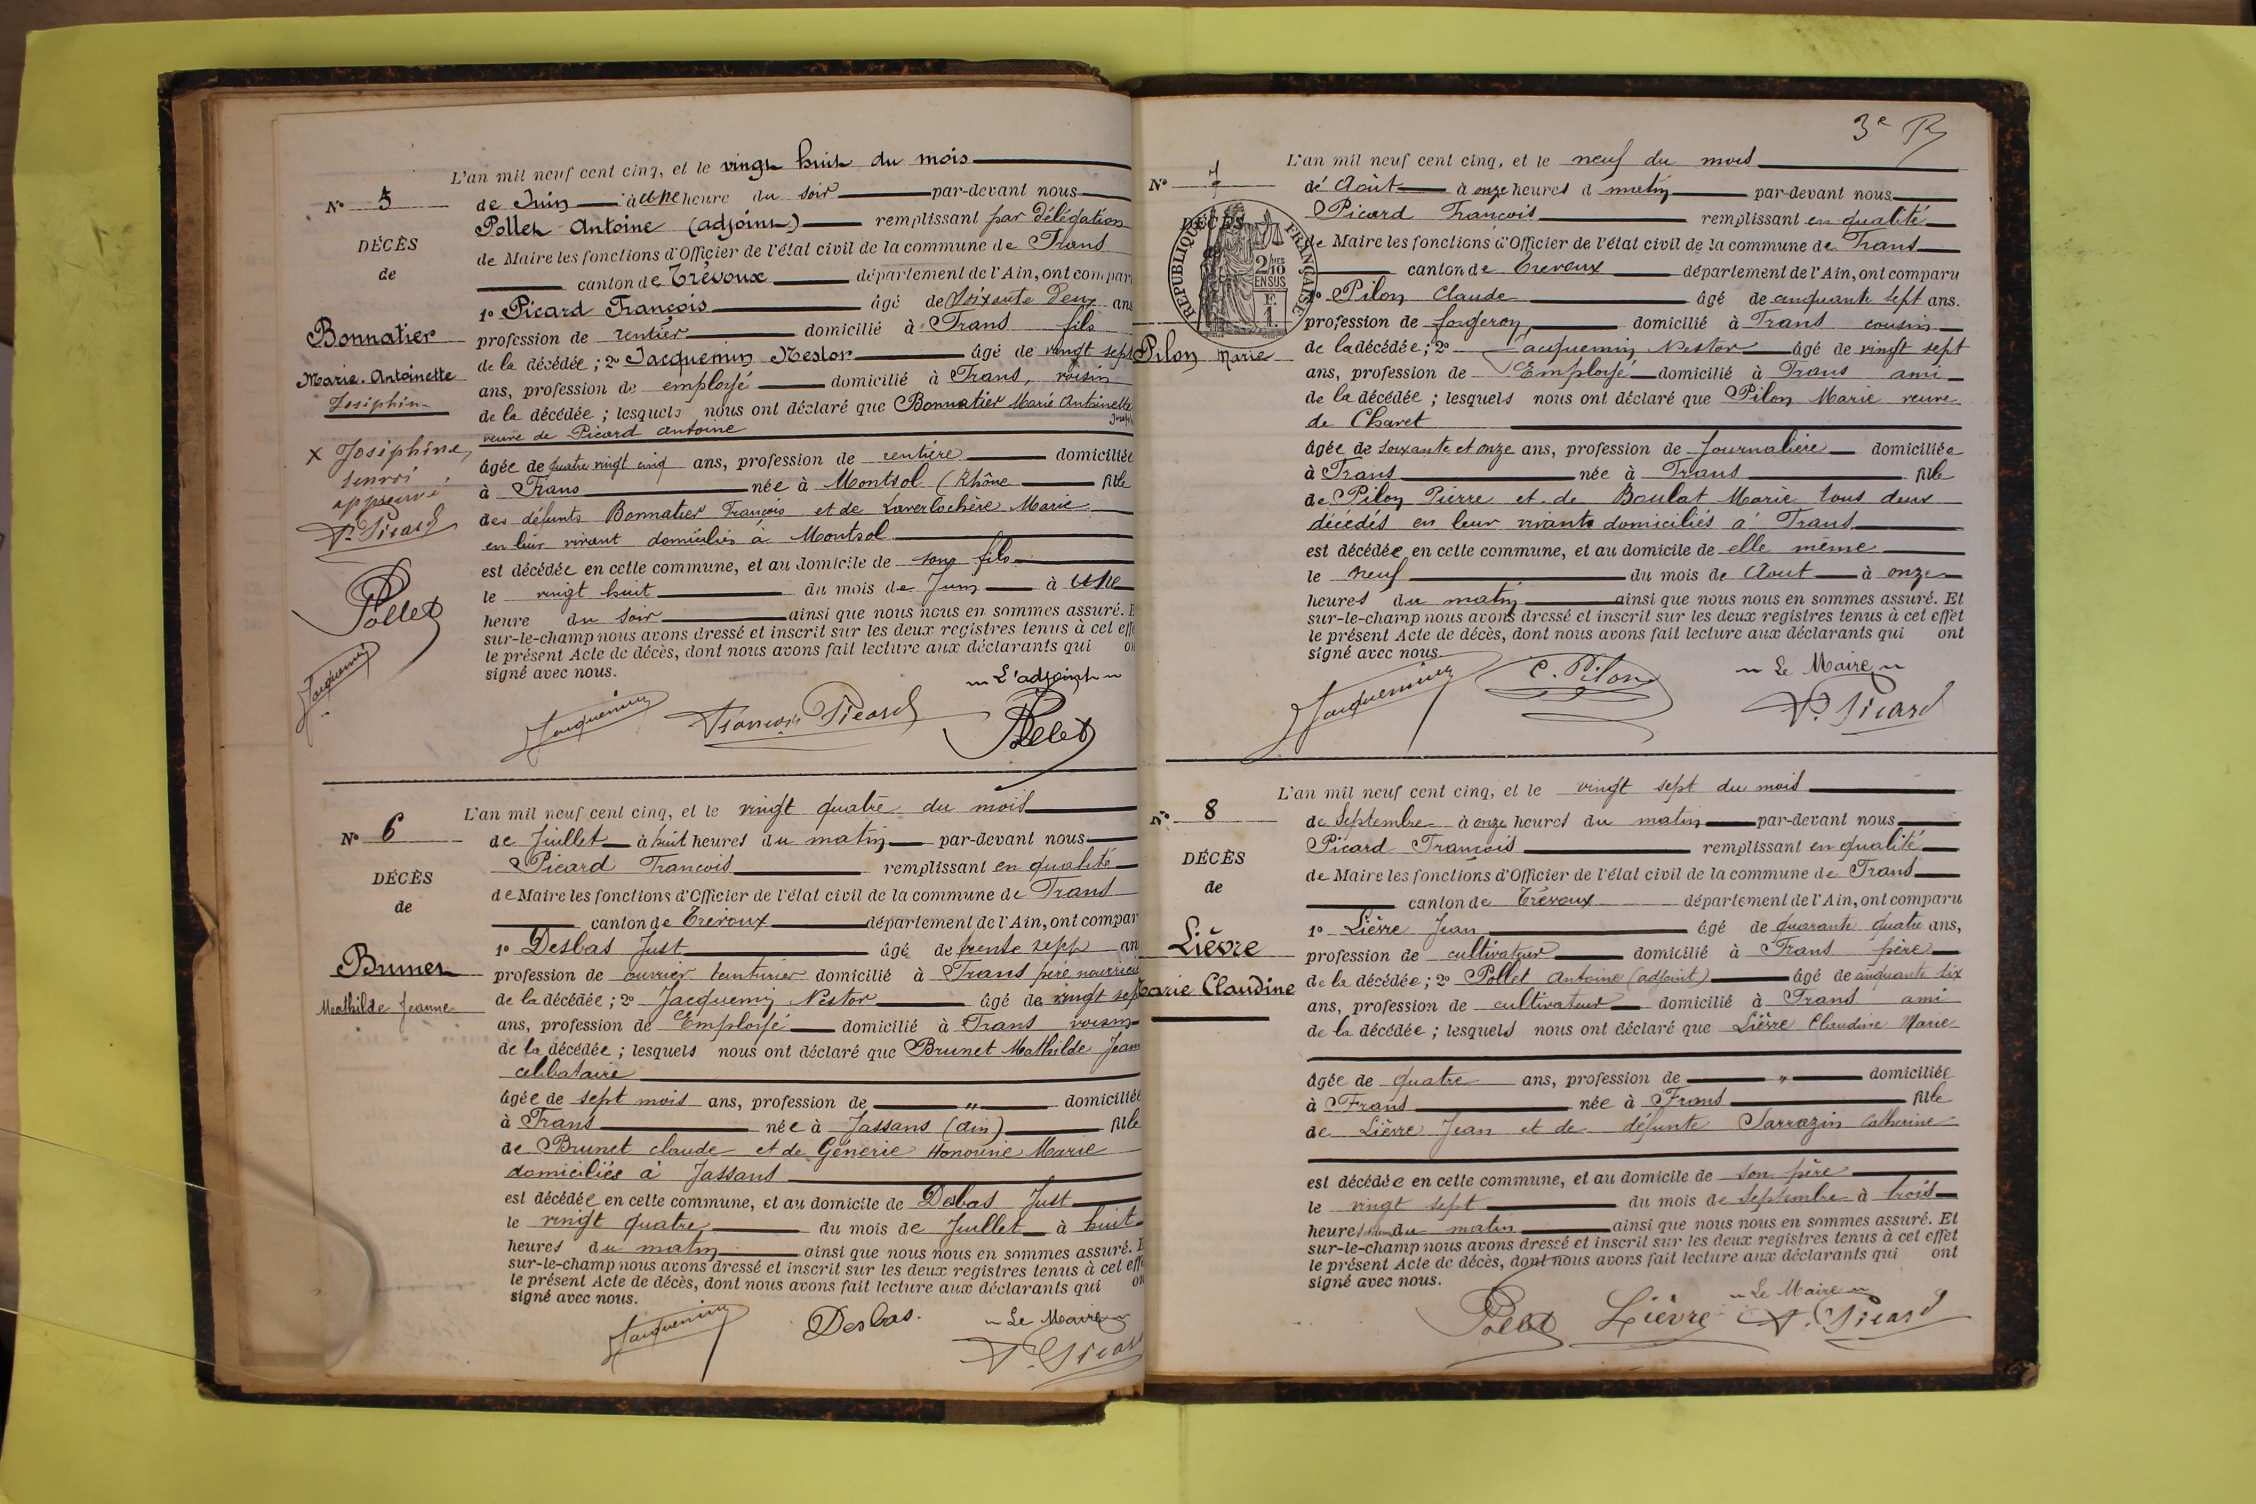 L'an mil neuf cent cinq, et le vingt huit du mois
N° 5
de Juin à une heure du soir par-devant nous
Pollet Antoine (adjoint) remplissant par délégation
DÉCÈS
de Maire les fonctions d'Officier de l'état civil de la commune de Frans
de
canton de Trévoux département de l'Ain, ont compar
1° Picard François âgé de soixante deux ans
Bonnatier
profession de rentier domicilié à Frans fils
de la décédée ; 2° Jacquemin Nestor âgé de vingt sept
Marie-Antoinette
ans, profession de employé domicilié à Frans, voisin
Joséphine
de la décédée ; lesquels nous ont déclaré que Bonnatier Marie Antoinette
veuve de Picard Antoine
X Joséphine,
renvoi
approuvé
F. Picard
Pollet
Jacquemin
âgée de quatre vingt cinq ans, profession de rentière domiciliée
à Frans née à Montsol (Rhône fille
des défunts Bonnatier François et de Laverlochère Marie
en leur vivant domiciliés à Montsol
est décédée en cette commune, et au domicile de son fils
le vingt huit du mois de Juin à une
heure du soir ainsi que nous nous en sommes assuré. E
sur-le-champ nous avons dressé et inscrit sur les deux registres tenus à cet effe
le présent Acte de décès, dont nous avons fait lecture aux déclarants qui on
signé avec nous.
L'adjoint
Jacquemin François Picard Pollet
L'an mil neuf cent cinq, et le vingt quatre du mois
N° 6
de Juillet à huit heures du matin par-devant nous
Picard François remplissant en qualité
DÉCÈS
de Maire les fonctions d'Officier de l'état civil de la commune de Frans
de
canton de Trévoux département de l'Ain, ont compar
1° Desbas Just âgé de trente sept an
Brunet
profession de ouvrier teinturier domicilié à Frans père nourricier
de la décédée ; 2° Jacquemin Nestor âgé de vingt sep
Mathilde Jeanne
ans, profession de Employé domicilié à Frans voisin
de la décédée ; lesquels nous ont déclaré que Brunet Mathilde Jean
célibataire
âgée de sept mois ans, profession de " domiciliée
à Frans née à Jassans (Ain) fille
de Brunet Claude et de Génerie Honorine Marie
domiciliés à Jassans
est décédée en cette commune, et au domicile de Desbas Just
le vingt quatre du mois de Juillet à huit
heures du matin ainsi que nous nous en sommes assuré. E
sur-le-champ nous avons dressé et inscrit sur les deux registres tenus à cet effe
le présent Acte de décès, dont nous avons fait lecture aux déclarants qui on
signé avec nous.
Le Maire
Jacquemin Desbas. F. Picard
3e
L'an mil neuf cent cinq, et le neuf du mois
N° 7
de Août à onze heures d matin par-devant nous
Picard François remplissant en qualité
DÉCÈS
RÉPUBLIQUE FRANÇAISE
2/10 EN SUS
de Maire les fonctions d'Officier de l'état civil de la commune de Frans
canton de Trévoux département de l'Ain, ont comparu
1° Pilon Claude âgé de cinquante sept ans.
profession de forgeron domicilié à Frans cousin
Pilon Marie
de la décédée ; 2° Jacquemin Nestor âgé de vingt sept
ans, profession de Employé domicilié à Frans ami
de la décédée ; lesquels nous ont déclaré que Pilon Marie veuve
de Charet
âgée de soixante et onze ans, profession de Journalière domiciliée
à Frans née à Frans fille
de Pilon Pierre et de Boulat Marie tous deux
décédés en leur vivants domiciliés à Frans
est décédée en cette commune, et au domicile de elle même
le neuf du mois de Aout à onze
heures du matin ainsi que nous nous en sommes assuré. Et
sur-le-champ nous avons dressé et inscrit sur les deux registres tenus à cet effet
le présent Acte de décès, dont nous avons fait lecture aux déclarants qui ont
signé avec nous.
Le Maire
Jacquemin C. Pilon F. Picard
L'an mil neuf cent cinq, et le vingt sept du mois
N° 8
de Septembre à onze heures du matin par-devant nous
Picard François remplissant en qualité
DÉCÈS
de Maire les fonctions d'Officier de l'état civil de la commune de Frans
de
canton de Trévoux département de l'Ain, ont comparu
1° Lièvre Jean âgé de quarante quatre ans,
Lièvre
profession de cultivateur domicilié à Frans père
de la décédée ; 2° Pollet Antoine (adjoint) âgé de cinquante six
Marie Claudine
ans, profession de cultivateur domicilié à Frans ami
de la décédée ; lesquels nous ont déclaré que Lièvre Claudine Marie
âgée de quatre ans, profession de " domiciliée
à Frans née à Frans fille
de Lièvre Jean et de défunte Sarrazin Catherine
est décédée en cette commune, et au domicile de son père
le vingt sept du mois de Septembre à trois
heures du matin ainsi que nous nous en sommes assuré. Et
sur-le-champ nous avons dressé et inscrit sur les deux registres tenus à cet effet
le présent Acte de décès, dont nous avons fait lecture aux déclarants qui ont
signé avec nous.
Le Maire
Pollet Lièvre F. Picard